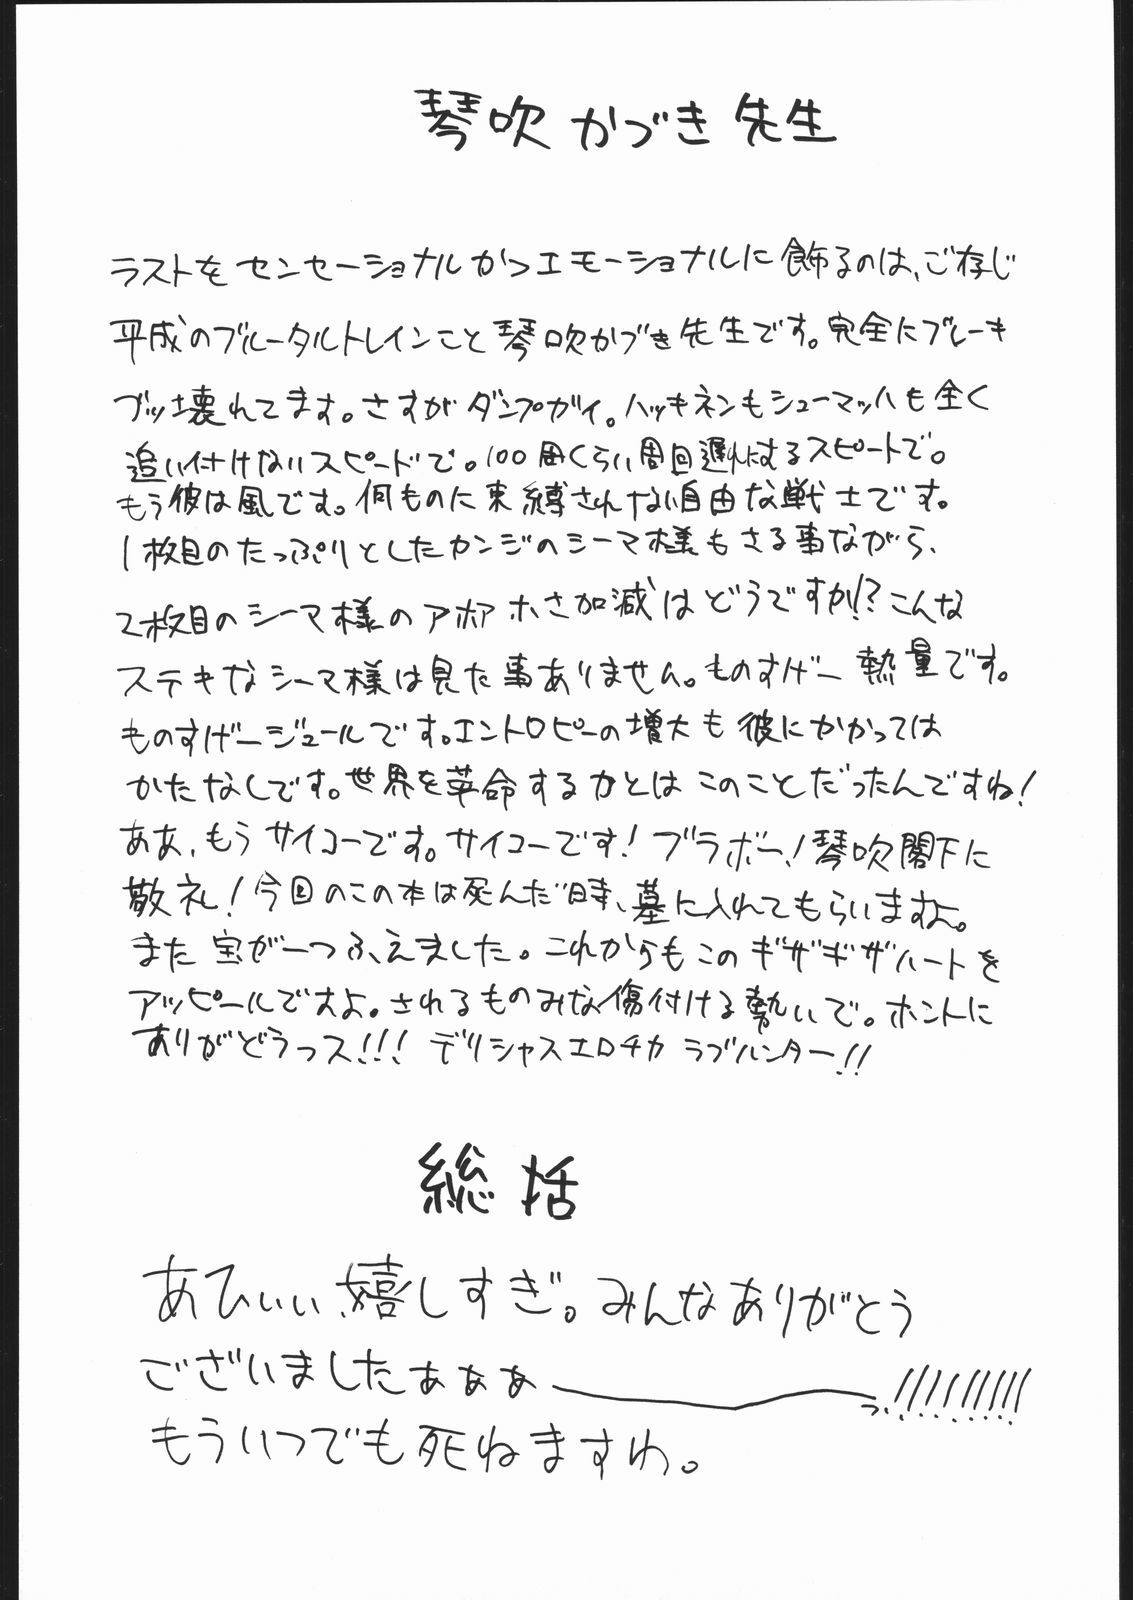 琴吹かづき先生
ラストをセンセーショナルかつエモーショナルに飾るのは、ご存じ
平成のブルータルトレインこと琴吹かづき先生です。完全にブレーキ
ブッ壊れてます。さすがダンプガイ。ハッキネンもシューマッハも全く
追い付けないスピードで。100周くらい周回遅れにするスピードで。
もう彼は風です。何ものに束縛されない自由な戦士です。
1枚目のたっぷりとしたカンジのシーマ様もさる事ながら、
2枚目のシーマ様のアホアホさ加減はどうですか!?こんな
ステキなシーマ様は見た事ありません。ものすげー熱量です。
ものすげージュールです。エントロピーの増大も彼にかかっては
かたなしです。世界を革命する力とはこのことだったんですね!
ああ、もうサイコーです。サイコーです!ブラボー!琴吹閣下に
敬礼!今回のこの本は死んだ時、墓に入れてもらいますよ。
また宝が一つふえました。これからもこのギザギザハートを
アッピールですよ。されるものみな傷付ける勢いで。ホントに
ありがどうっス!!!デリシャスエロチカラブハンター!!
総括
あひぃぃ、嬉しすぎ。みんなありがとう
ございましたぁぁぁーーっ!!!!!!!!!
もういつでも死ねますわ。